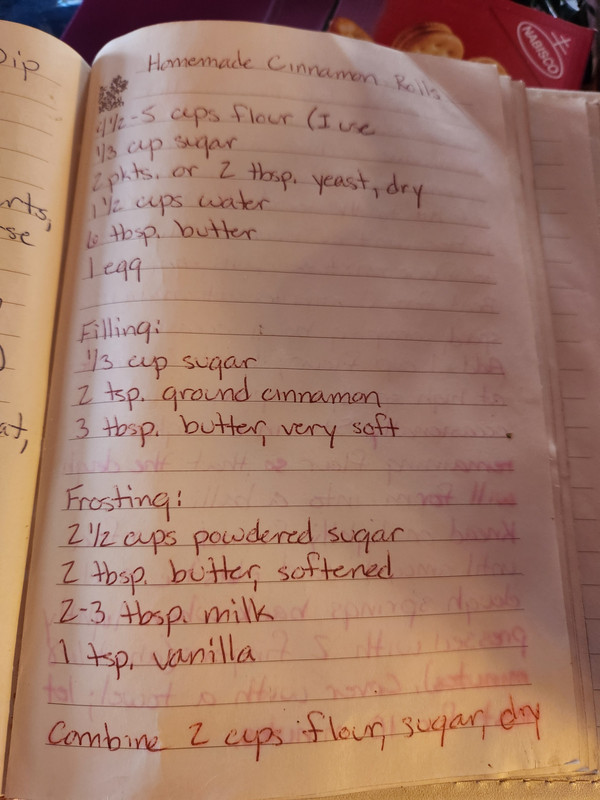 Dip
rts,
se
at,
NABISCO
Homemade Cinnamon Rolls
4 1/2-5 cups flour (I use
1/3 cup sugar
2 pkts. or 2 tbsp. yeast, dry
1 1/2 cups water
6 tbsp. butter
1 egg
Filling:
1/3 cup sugar
2 tsp. ground cinnamon
3 tbsp. butter, very soft
Frosting:
2 1/2 cups powdered sugar
2 tbsp. butter, softened
2-3 tbsp. milk
1 tsp. vanilla
Combine 2 cups flour, sugar, dry